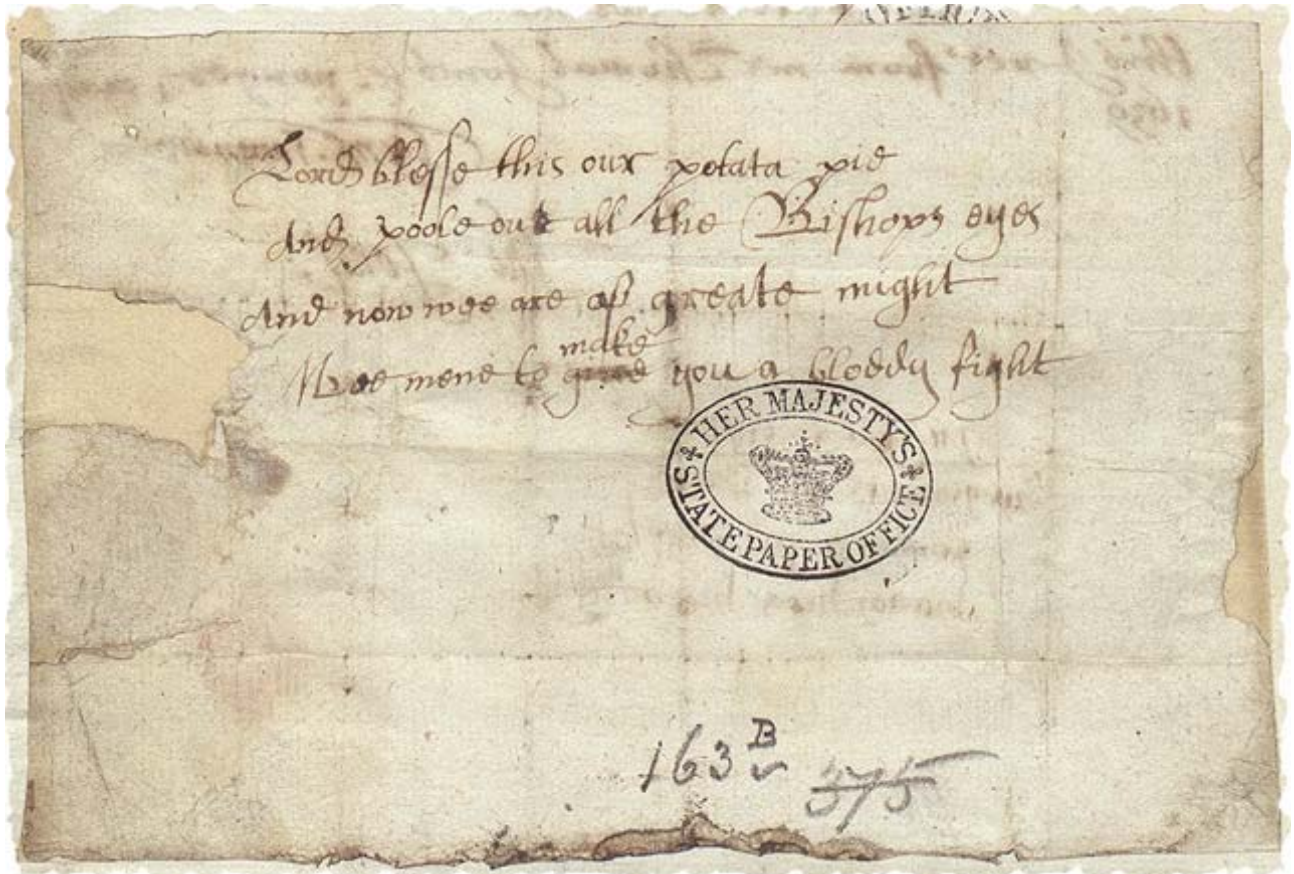 Lord blesse this our potata pie
And poole out all the Bishops eyes
And now wee are of greate might
make
Wee mene to give you a bloddy fight
HER MAJESTY'S
STATE PAPER OFFICE
163 B
375